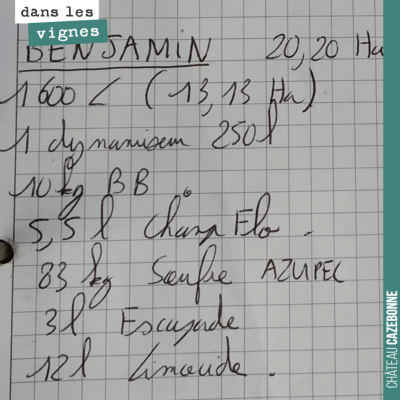 dans les
vignes
BENJAMIN 20,20 Ha
1600 L (13,13 Ha)
1 dynamiseur 250 l
10 kg BB.
5,5 l Champ Flo.
83 kg Soufre AZUPEC
3 l Escapade
12 l Limocide.
CHÂTEAU CAZEBONNE